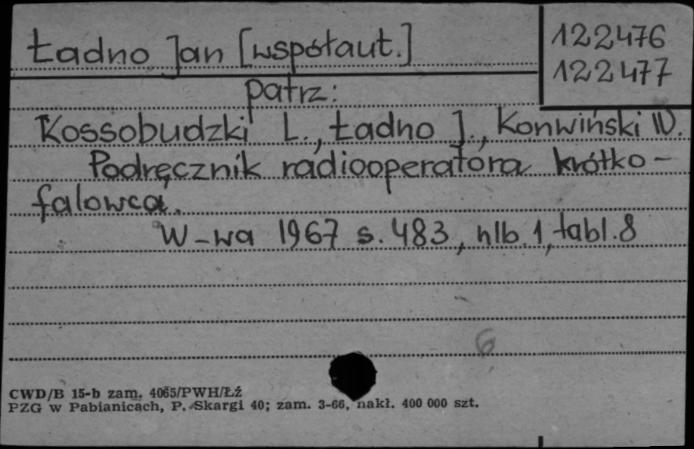 Ładno Jan [współaut.]
122476
122477
patrz:
Kossobudzki L., Ładno J., Konwiński W.
Podręcznik radiooperatora krótko-
falowca.
W-wa 1967 s. 483, nlb. 1, tabl. 8
6
CWD/B 15-b zam. 4065/PWH/Łź
PZG w Pabianicach, P. Skargi 40; zam. 3-66, nakł. 400 000 szt.